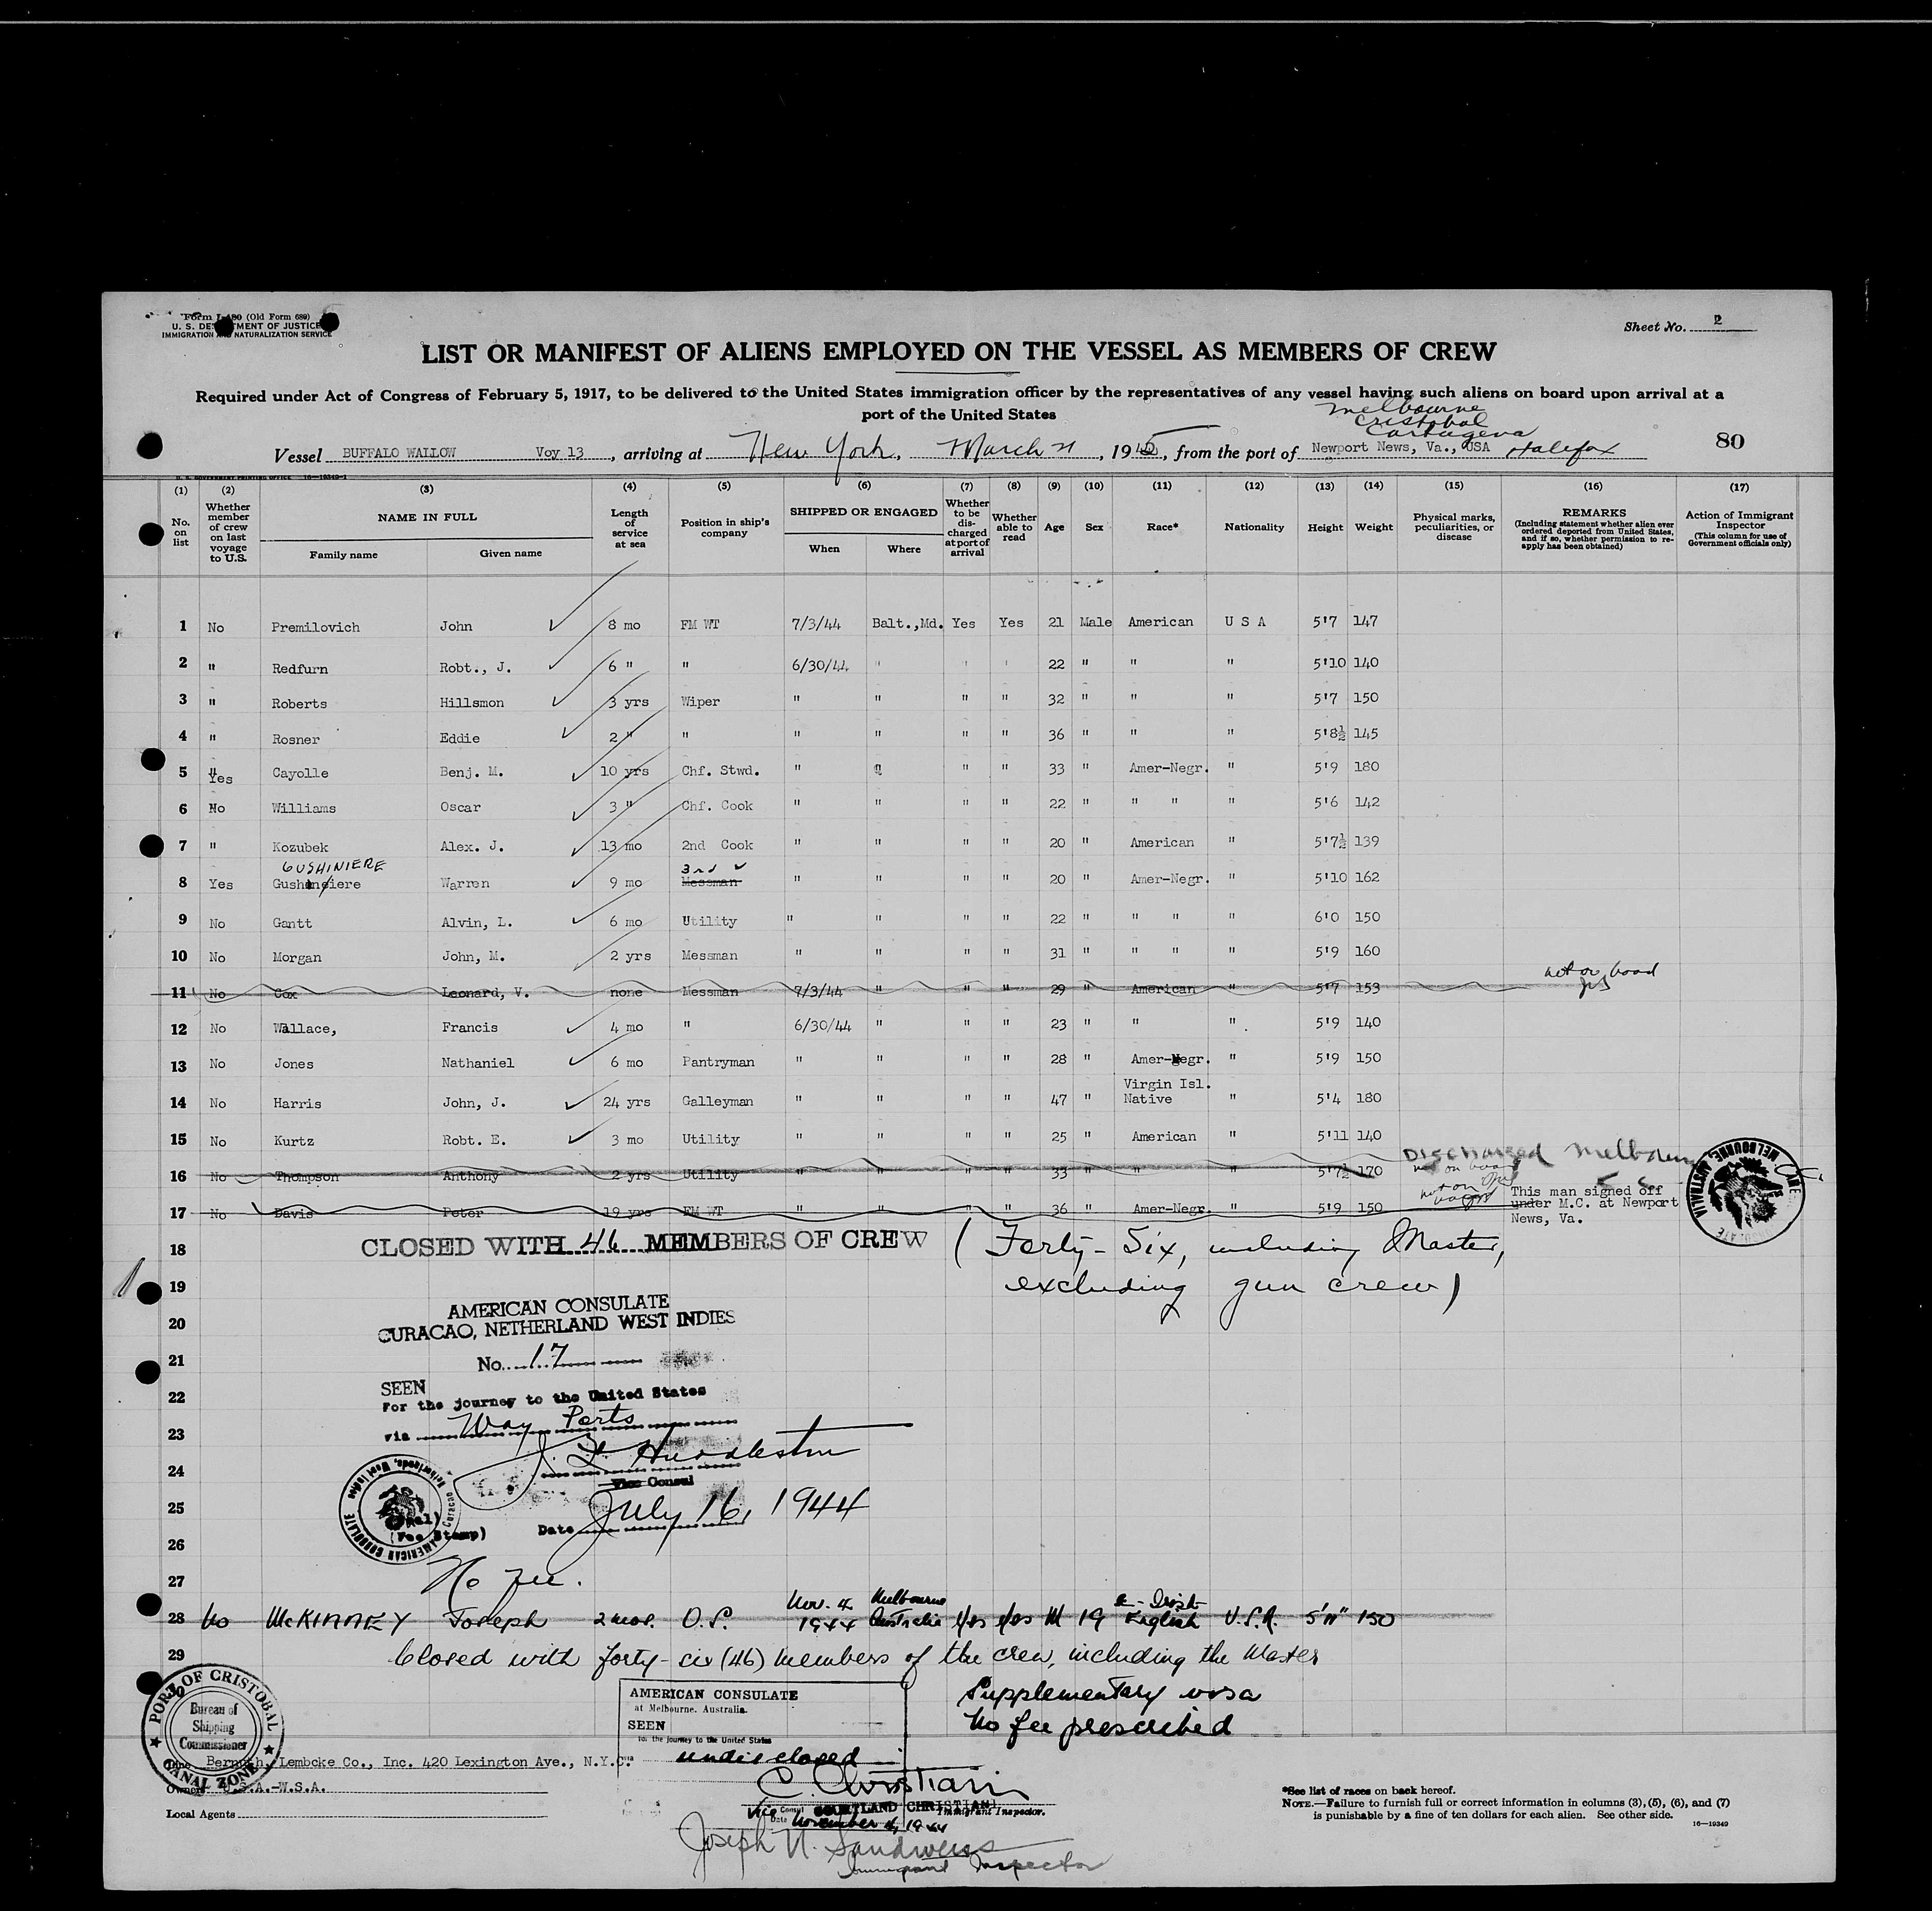 Form I-480 (Old Form 689)
U. S. DEPARTMENT OF JUSTICE
IMMIGRATION AND NATURALIZATION SERVICE
Sheet No. 2
LIST OR MANIFEST OF ALIENS EMPLOYED ON THE VESSEL AS MEMBERS OF CREW
Required under Act of Congress of February 5, 1917, to be delivered to the United States immigration officer by the representatives of any vessel having such aliens on board upon arrival at a
port of the United States
Melbourne
Cristobal
Cartagena
Vessel BUFFALO WALLOW Voy 13, arriving at New York, March 21, 1945, from the port of Newport News, Va., USA Halifax
80
U. S. GOVERNMENT PRINTING OFFICE 16-19349-1
(1) (2) (3) (4) (5) (6) (7) (8) (9) (10) (11) (12) (13) (14) (15) (16) (17)
No. on list
Whether member of crew on last voyage to U.S.
NAME IN FULL
Family name
Given name
Length of service at sea
Position in ship's company
SHIPPED OR ENGAGED
When
Where
Whether to be discharged at port of arrival
Whether able to read
Age
Sex
Race*
Nationality
Height
Weight
Physical marks, peculiarities, or disease
REMARKS
(Including statement whether alien ever ordered deported from United States, and if so, whether permission to re-apply has been obtained)
Action of Immigrant Inspector
(This column for use of Government officials only)
1 No Premilovich John 8 mo FM WT 7/3/44 Balt.,Md. Yes Yes 21 Male American U S A 5'7 147
2 " Redfurn Robt., J. 6 " " 6/30/44 " " " 22 " " " 5'10 140
3 " Roberts Hillsmon 3 yrs Wiper " " " " 32 " " " 5'7 150
4 " Rosner Eddie 2 " " " " " " 36 " " " 5'8½ 145
5 Yes Cayolle Benj. M. 10 yrs Chf. Stwd. " " " " 33 " Amer-Negr. " 5'9 180
6 No Williams Oscar 3 " Chf. Cook " " " " 22 " " " " 5'6 142
7 " Kozubek Alex. J. 13 mo 2nd Cook " " " " 20 " American " 5'7½ 139
GUSHINIERE 3rd
8 Yes Gushineiere Warren 9 mo Messman " " " " 20 " Amer-Negr. " 5'10 162
9 No Gantt Alvin, L. 6 mo Utility " " " " 22 " " " " 6'0 150
10 No Morgan John, M. 2 yrs Messman " " " " 31 " " " " 5'9 160
not on board
11 No Cox Leonard, V. none Messman 7/3/44 " " " 29 " American " 5'7 153
12 No Wallace, Francis 4 mo " 6/30/44 " " " 23 " " " 5'9 140
13 No Jones Nathaniel 6 mo Pantryman " " " " 28 " Amer-Negr. " 5'9 150
Virgin Isl.
14 No Harris John, J. 24 yrs Galleyman " " " " 47 " Native " 5'4 180
15 No Kurtz Robt. E. 3 mo Utility " " " " 25 " American " 5'11 140
Discharged Melbourne
16 No Thompson Anthony 2 yrs Utility " " " " 33 " " " 5'7½ 170 not on board
17 No Davis Peter 19 yrs FM WT " " " " 36 " Amer-Negr. " 5'9 150 not on board
This man signed off
under M.C. at Newport
News, Va.
18 CLOSED WITH 46 MEMBERS OF CREW (Forty-Six, including Master,
19 excluding gun crew)
AMERICAN CONSULATE
20 CURACAO, NETHERLAND WEST INDIES
21 No. 17
SEEN
22 For the journey to the United States
23 via Way Ports
24 Huddleston
Vice Consul
25 Date July 16, 1944
(Seal)
(Fee Stamp)
AMERICAN CONSULATE Curacao Netherlands, West Indies
26
27 No fee.
Nov. 4 Melbourne
28 No McKINNEY Joseph 2 mos. O.S. 1944 Australia Yes Yes M 19 Irish English U.S.A. 5'11" 150
29 Closed with forty-six (46) members of the crew, including the Master
30
PORT OF CRISTOBAL
Bureau of
Shipping
Commissioner
CANAL ZONE
AMERICAN CONSULATE
at Melbourne, Australia.
SEEN
for the journey to the United States
undisclosed
C. Christian
Vice Consul COURTLAND CHRISTIAN
Immigrant Inspector.
Date November 4, 1944
Supplementary visa
No fee prescribed
Line Bernuth, Lembcke Co., Inc. 420 Lexington Ave., N.Y.C.
Owners U.S.A.-W.S.A.
Local Agents
Joseph N. Sandweiss
Immigrant Inspector
*See list of races on back hereof.
NOTE.—Failure to furnish full or correct information in columns (3), (5), (6), and (7)
is punishable by a fine of ten dollars for each alien. See other side.
16-19349